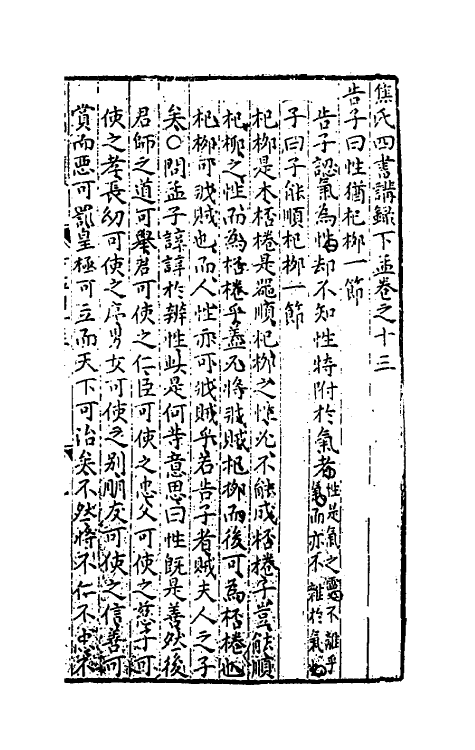 焦氏四書講錄下孟卷之十三
告子曰性猶杞柳一節
告子認氣為性却不知性特附於氣者性是氣之靈不離乎氣而亦不雜於氣也
子曰子能順杞柳一節
杞柳是木桮棬是器順杞柳之性
不能成桮棬子豈能順
杞柳之性而為桮棬乎蓋
將戕賊杞柳而後可為桮棬也
杞柳可戕賊也而人性亦可戕賊乎若告子者賊夫人之子
矣○問孟子諄諄於辨性此是何等意思曰性既是善然後
君師之道可舉君可使之仁臣可使之忠父可使之慈子可
使之孝長幼可使之序男女可使之别朋友可使之信善可
賞而惡可罰皇極可立而天下可治矣不然將不仁不忠不